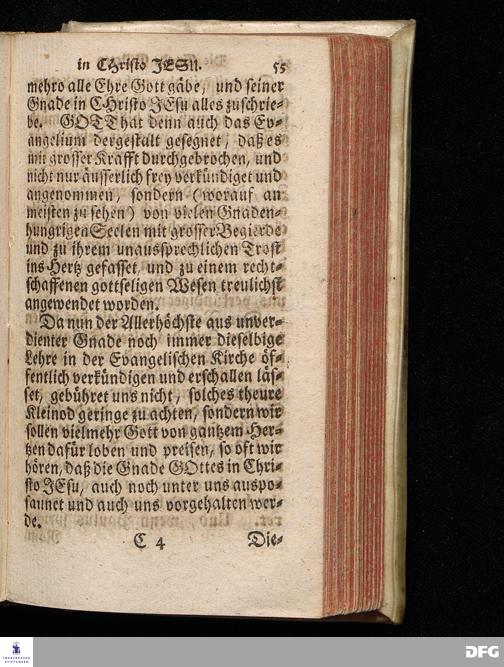 in CHristo JESU. 55
mehro alle Ehre Gott gäbe, und seiner
Gnade in CHristo JEsu alles zuschrie-
be. GOTT hat denn auch das Ev-
angelium dergestalt gesegnet, daß es
mit grosser Krafft durchgebrochen, und
nicht nur äusserlich frey verkündiget und
angenommen, sondern (worauf am
meisten zu sehen) von vielen Gnaden-
hungrigen Seelen mit grosser Begierde
und zu ihrem unaussprechlichen Trost
ins Hertz gefasset, und zu einem recht-
schaffenen gottseligen Wesen treulichst
angewendet worden.
Da nun der Allerhöchste aus unver-
dienter Gnade noch immer dieselbige
Lehre in der Evangelischen Kirche öf-
fentlich verkündigen und erschallen läs-
set, gebühret uns nicht, solches theure
Kleinod geringe zu achten, sondern wir
sollen vielmehr Gott von gantzem Her-
tzen dafür loben und preisen, so oft wir
hören, daß die Gnade GOttes in Chri-
sto JEsu, auch noch unter uns auspo-
saunet und auch uns vorgehalten wer-
de.
C 4 Die-
FRANCKESCHE STIFTUNGEN
DFG